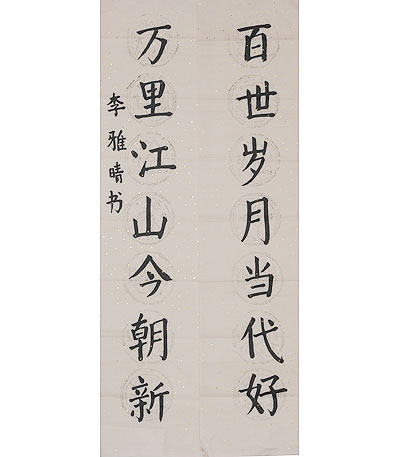 百世岁月当代好
万里江山今朝新
李雅晴书